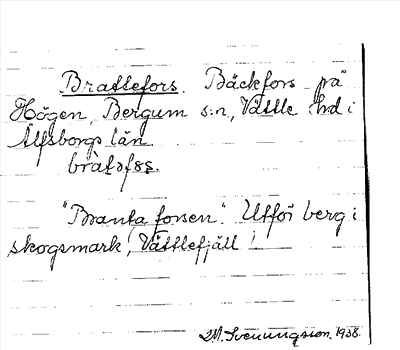 Brattefors. Bäckfors på
Högen, Bergum s:n, Vättle hd i
Älfsborgs län.
"Branta forsen". Utför berg i
skogsmark, Vättlefjäll!
M. Svenungsson. 1938.